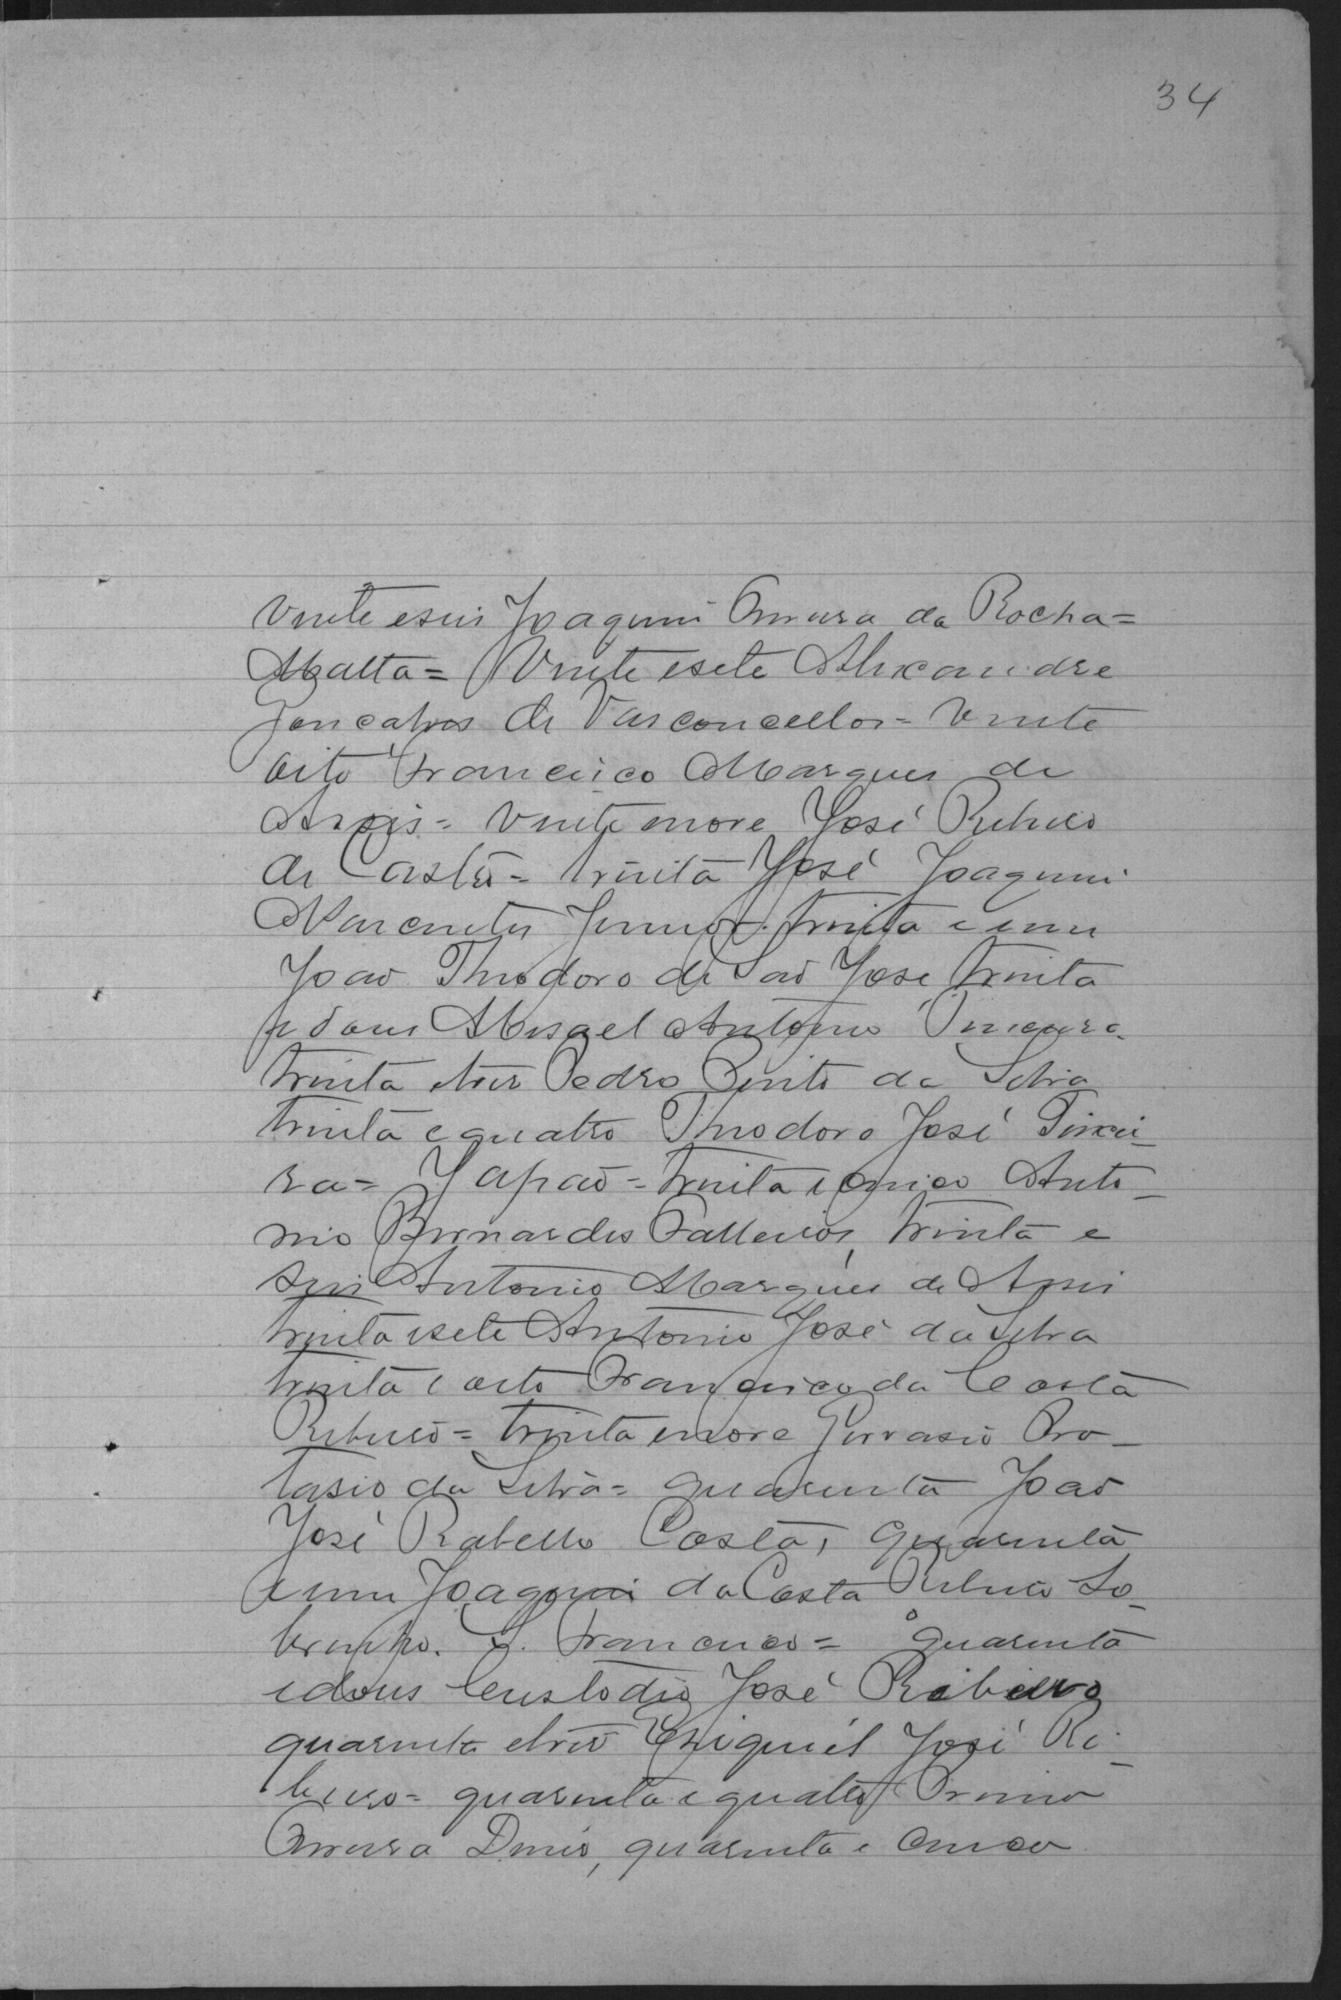 34
Vinte e seis Joaquim Correa da Rocha=
Malta= Vinte e sete Alexandre
Goncalves de Vasconcellos= Vinte
oito Francisco Marques de
Assis= Vinte nove José Ribeiro
de Castro= trinta José Joaquim
Junior. trinta e um
Joao Theodoro de Sao Jose trinta
e dous Misael Antonio
trinta e tres Pedro Pinto da Silva
trinta e quatro Theodoro José Teixei_
ra= Japão= trinta e cinco Anto_
nio Bernardes trinta e
seis Antonio Marques de Assis
trinta e sete Antonio José da Silva
trinta e oito Francisco da Costa
Ribeiro= trinta e nove Gervasio Pro_
tasio da Silva= quarenta Joao
José Rabello Costa, quarenta
e um Joaquim da Costa Ribeiro So_
brinho. S. Francisco= quarenta
e dous Custodio José Ribeiro
quarenta e tres Ezequiel José Ri_
beiro= quarenta e quatro Primo
Correa Diniz, quarenta e cinco